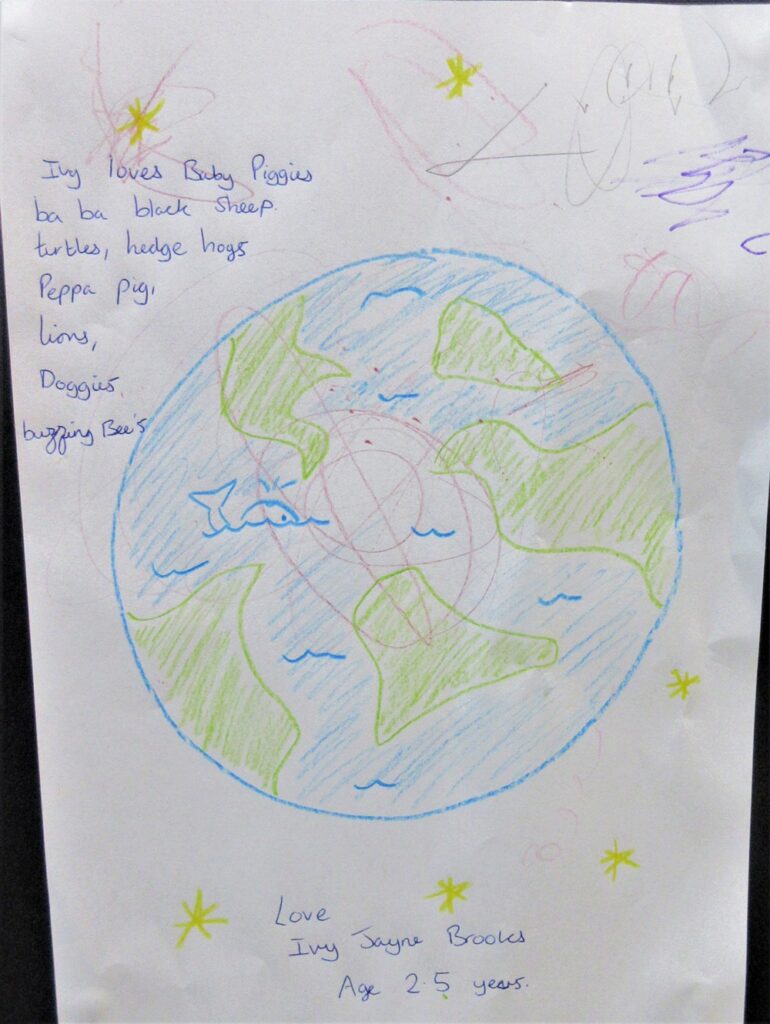 Ivy loves Baby Piggies
ba ba black Sheep.
turtles, hedge hogs
Peppa pig,
lions,
Doggies,
buzzing Bee's
Love
Ivy Jayne Brooks
Age 2.5 years.